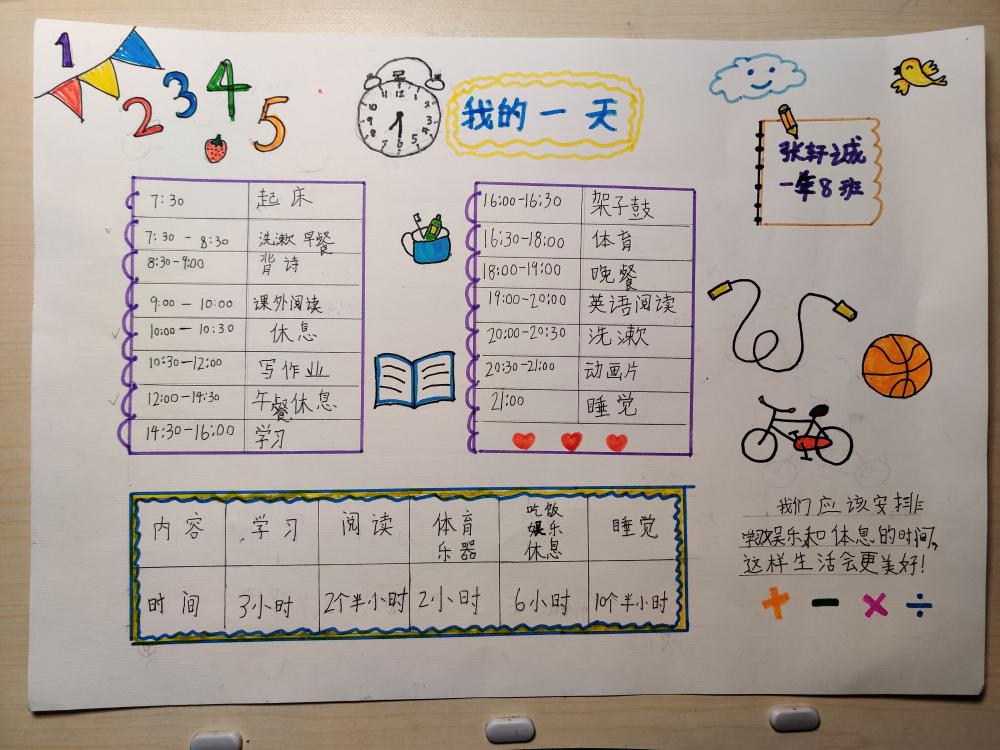 1 2 3 4 5
12 1 2 3 4 5 6 7 8 9 10 11
我的一天
张轩诚
一年8班
7:30 起床
7:30-8:30 洗漱 早餐
8:30-9:00 背诗
9:00-10:00 课外阅读
10:00-10:30 休息
10:30-12:00 写作业
12:00-14:30 午餐休息
14:30-16:00 学习
16:00-16:30 架子鼓
16:30-18:00 体育
18:00-19:00 晚餐
19:00-20:00 英语阅读
20:00-20:30 洗漱
20:30-21:00 动画片
21:00 睡觉
内容 学习 阅读 体育 乐器 吃饭 娱乐 休息 睡觉
时间 3小时 2个半小时 2小时 6小时 10个半小时
我们应该安排
学习娱乐和休息的时间,
这样生活会更美好!
+ - × ÷